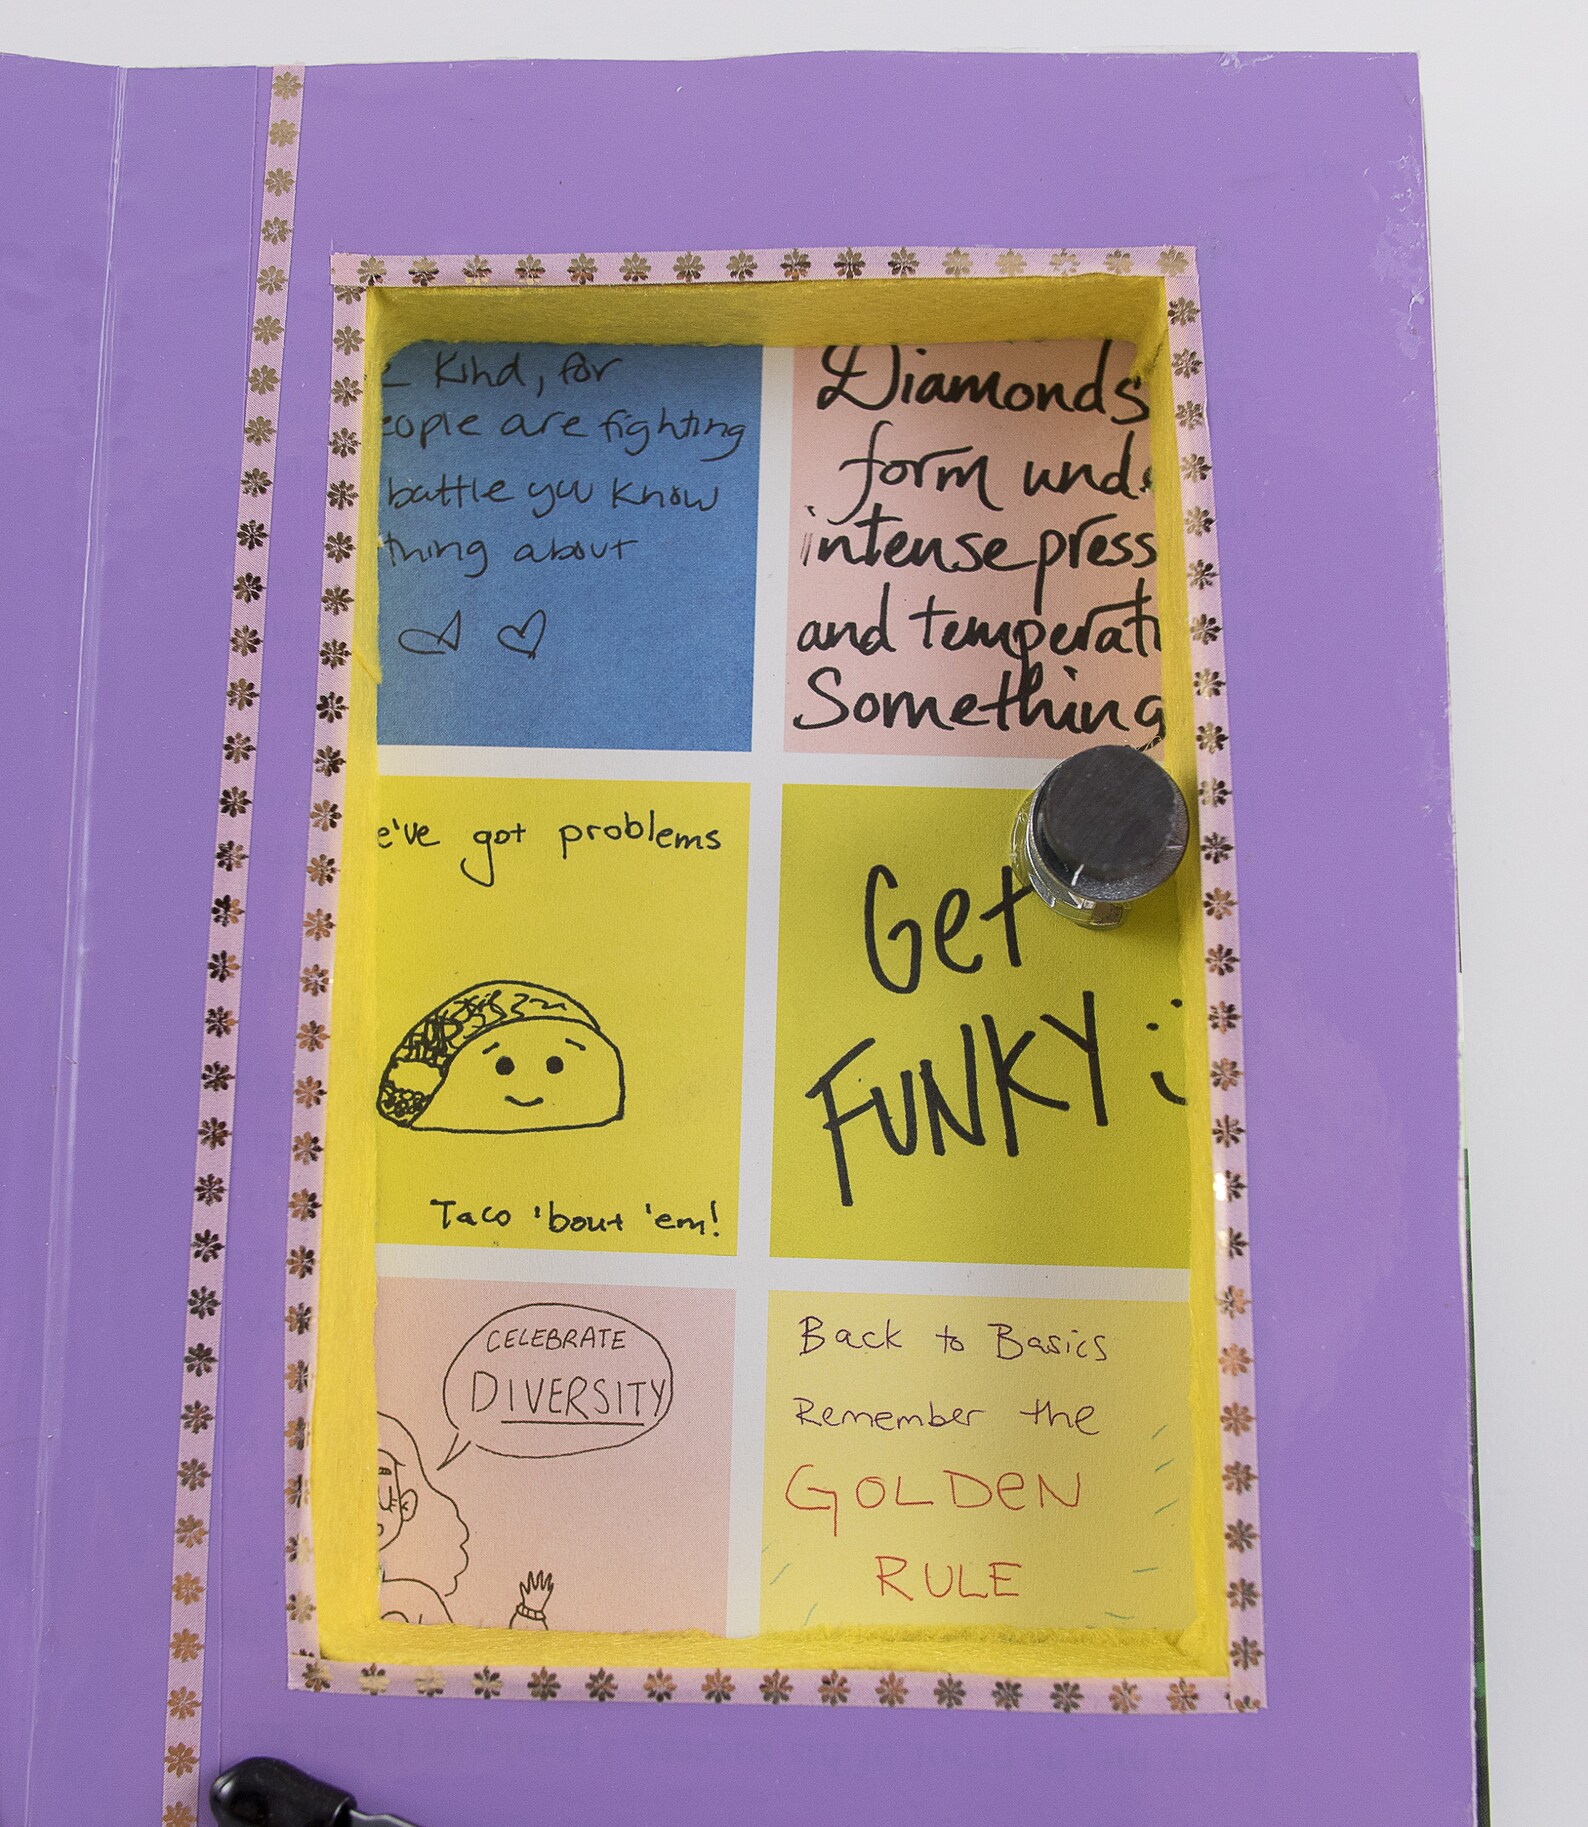 Kind, for
eople are fighting
battle you know
thing about
Diamonds
form unde
intense press
and temperat
Something
e've got problems
Taco 'bout 'em!
Get
FUNKY
CELEBRATE
DIVERSITY
Back to Basics
Remember the
GOLDEN
RULE